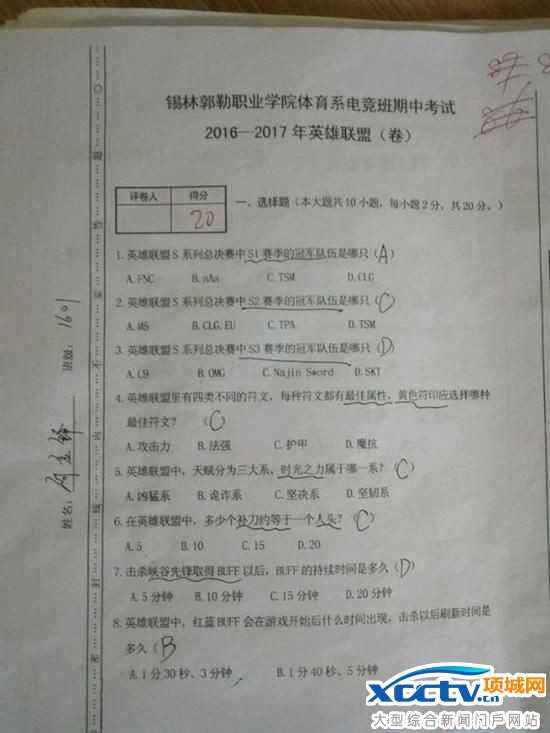 锡林郭勒职业学院体育系电竞班期中考试
2016—2017年英雄联盟（卷）
评卷人 得分
20
一、选择题（本大题共10小题，每小题2分，共20分。）
1.英雄联盟S系列总决赛中S1赛季的冠军队伍是哪只（A）
A.FNC B.aAa C.TSM D.CLG
2.英雄联盟S系列总决赛中S2赛季的冠军队伍是哪只（C）
A.M5 B.CLG.EU C.TPA D.TSM
3.英雄联盟S系列总决赛中S3赛季的冠军队伍是哪只（D）
A.C9 B.OMG C.Najin Sword D.SKT
4.英雄联盟里有四类不同的符文，每种符文都有最佳属性，黄色符印应选择哪种
最佳符文？（C）
A.攻击力 B.法强 C.护甲 D.魔抗
5.英雄联盟中，天赋分为三大系，时光之力属于哪一系？（C）
A.凶猛系 B.诡诈系 C.坚决系 D.坚韧系
6.在英雄联盟中，多少个补刀约等于一个人头？（C）
A.5 B.10 C.15 D.20
7.击杀峡谷先锋取得BUFF以后，BUFF的持续时间是多久（D）
A.5分钟 B.10分钟 C.15分钟 D.20分钟
8.英雄联盟中，红蓝BUFF会在游戏开始后什么时间出现，击杀以后刷新时间是
多久（B）
A.1分30秒、3分钟 B.1分40秒、5分钟
班级：1601
姓名：
密 封 线 内 不 要 答 题
xcctv.cn 项城网
大型综合新闻门戶网站